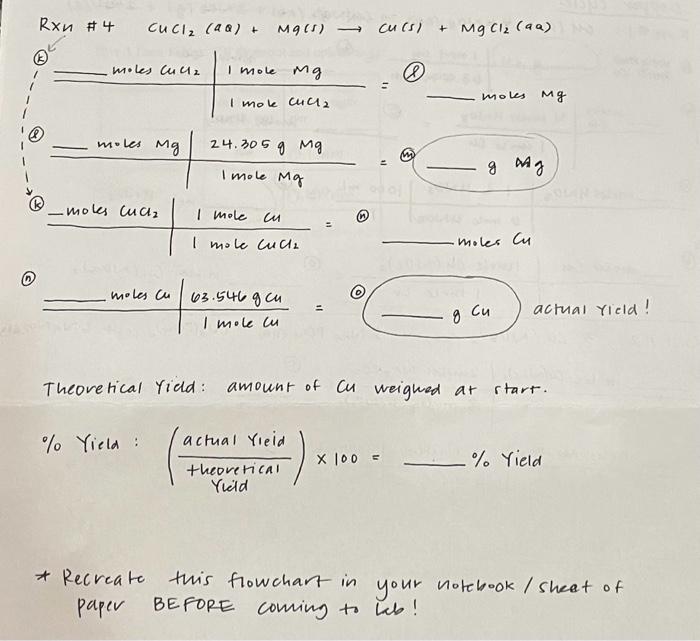 Rxn #4 CuCl2 (aq) + Mg(s) → Cu(s) + MgCl2 (aq)
(k) ___ moles CuCl2 | 1 mole Mg
= (l) ___ moles Mg
1 mole CuCl2
(l) ___ moles Mg | 24.305 g Mg
= (m) ___ g Mg
1 mole Mg
(k) ___ moles CuCl2 | 1 mole Cu
= (n) ___ moles Cu
1 mole CuCl2
(n) ___ moles Cu | 63.546 g Cu
= (o) ___ g Cu actual Yield!
1 mole Cu
Theoretical Yield: amount of Cu weighed at start.
% Yield : (actual Yield / theoretical Yield) x 100 = ___ % Yield
* Recreate this flowchart in your notebook / sheet of
paper BEFORE coming to lab!